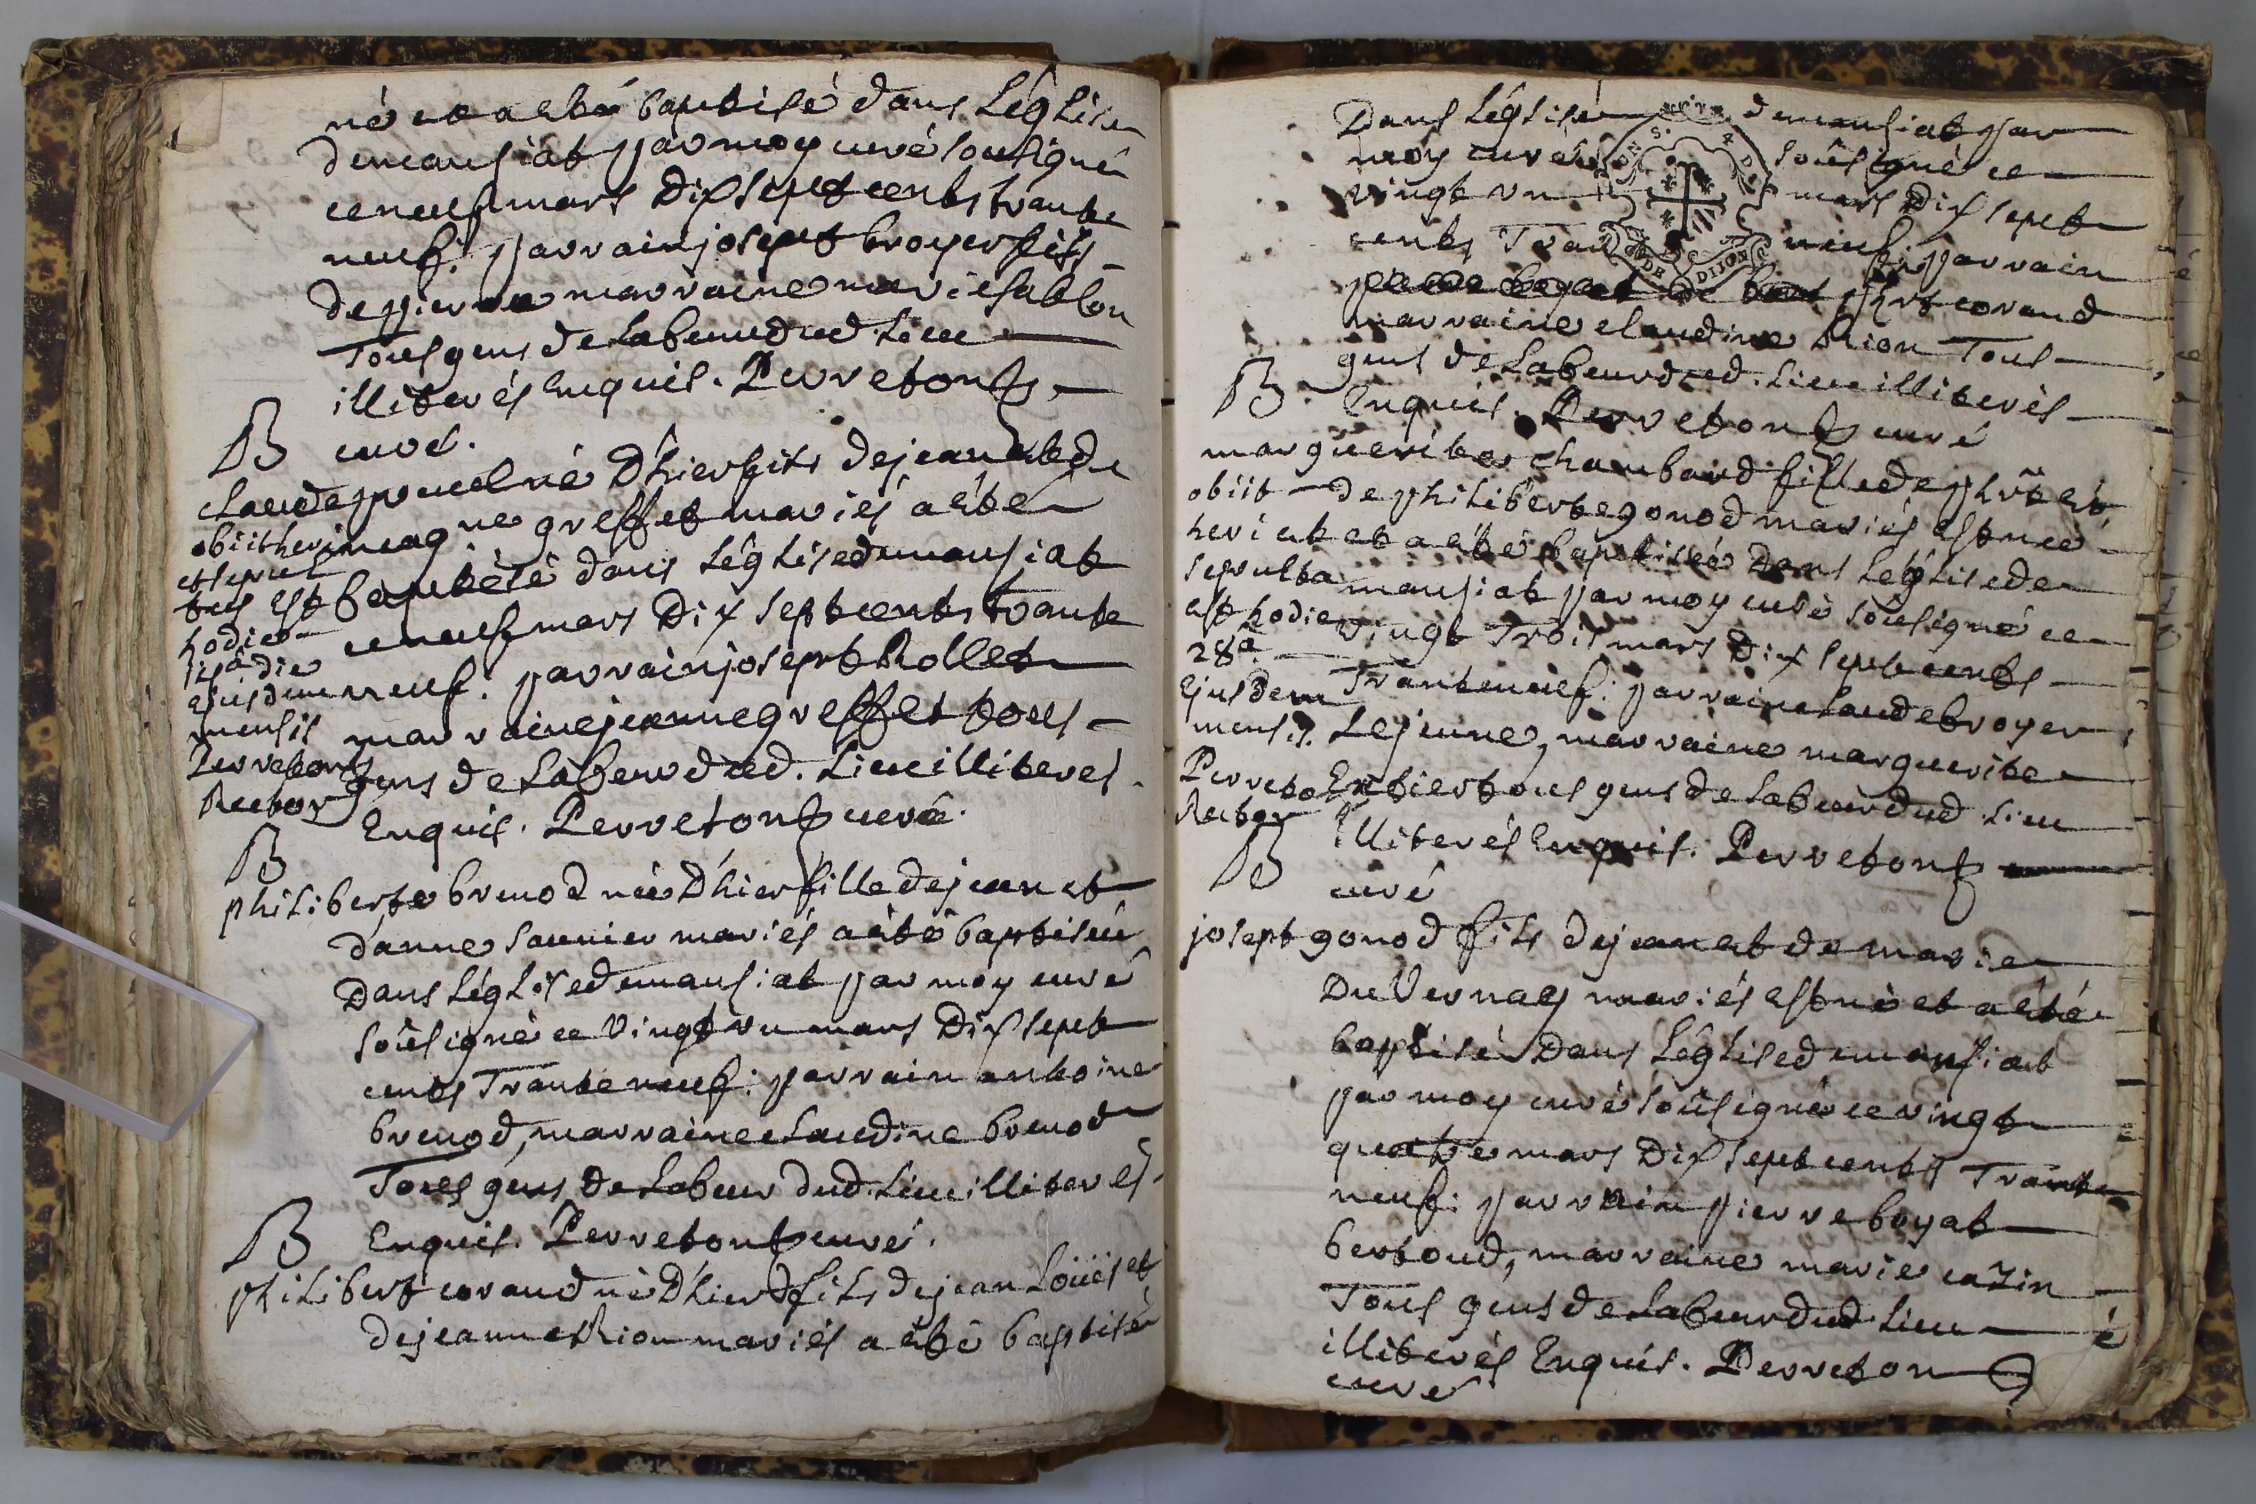 né et a eté baptisé dans Léglise
demansiat par moy curé sousigné
ce neuf mars Dix sept cents trante
neuf. parrain josept broyer fils
de pierre marraine marie sablon
Tous gens de Labeur dud. Lieu
illiterés Enquis. Perreton
curé.
B
claude pruel né D'hier fils de jean et de
obiit heri
imagne greffet mariés a été
et sepul
tus est
baptisé dans Léglise demansiat
hodie
ce neuf mars Dix sept cents trante
die
ejusdem
neuf. parrain josept Rollet
mensis
marraine jeanne greffet tous
Perreton
gens de Labeur dud. Lieu illiterés
Rector
Enquis. Perreton curé.
B
philiberte brevod née D'hier fille de jean et
d'anne saunier mariés a eté baptisée
Dans Léglise demansiat par moy curé
sousigné ce vingt un mars Dix sept
cents Trante neuf: parrain antoine
brevod, marraine claudine brevod
Tous gens de Labeur dud. Lieu illiterés
Enquis. Perreton curé.
B
philibert corand né D'hier fils de jean Loüis et
de jeanne Rion mariés a eté baptisé
Dans Léglise demansiat par
moy curé sousigné ce
vingt un mars Dix sept
cents Tran neuf. parrain
phrt corand
marraine claudine Rion Tous
gens de Labeur dud. Lieu illiterés
B
Enquis. Perreton curé
marguerite chambard fille de phrt et
obiit de philiberte gonod mariés est née
heri et et a eté baptisée Dans Léglise de
sepulta mansiat par moy curé sousigné ce
est hodie vingt Trois mars Dix sept cents
28a
ejusdem Trante neuf: parrain claude broyer
mensis. Lejeune, marraine marguerite
Perreton Entier tous gens de Labeur dud. Lieu
Rector
illiterés Enquis. Perreton
B
curé
josept gonod fils de jean et de marie
Du Vernay mariés est né et a eté
baptisé Dans Léglise demansiat
par moy curé sousigné ce vingt
quatre mars Dix sept cents Trante
neuf: parrain pierre boyat
bertoud, marraine marie cazin
Tous gens de Labeur dud. Lieu
illiterés Enquis. Perreton
curé
DIJON